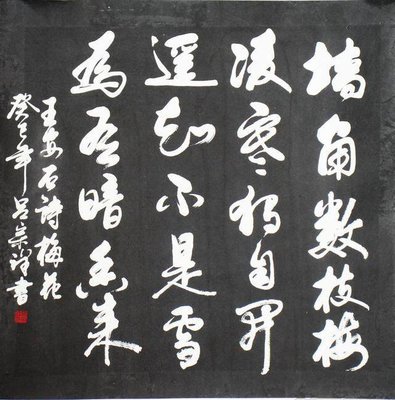 墙角数枝梅
凌寒独自开
遥知不是雪
為有暗香来
王安石詩梅花
癸巳年吕書